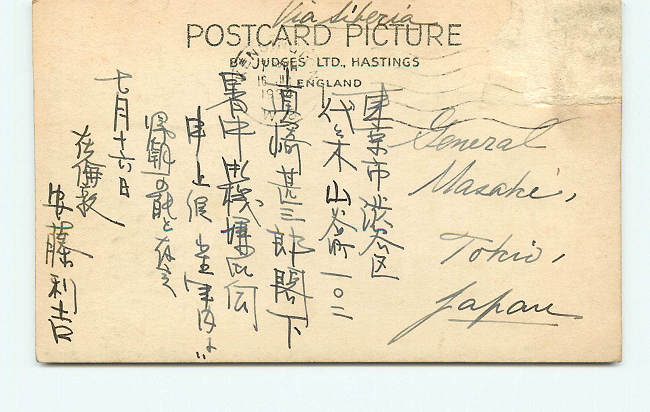 Via Siberia
POSTCARD PICTURE
BY JUDGES' LTD., HASTINGS
ENGLAND
General
Masaki,
Tokio,
Japan
東京市渋谷区
代々木山谷町一〇二
真崎甚三郎閣下
暑中御機嫌御伺
申上候
七月十六日
在倫敦
安藤利吉